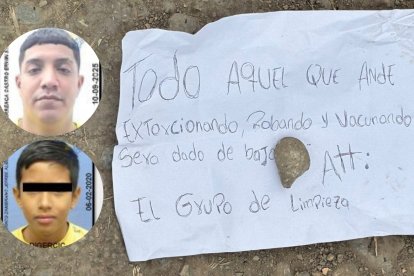 TODO AQUEL QUE ANDE
EXTORCIONANDO, Robando y Vacunando
Sera dado de baja
Att:
EL GRUPO DE Limpieza
10-09-2025
06-02-2020